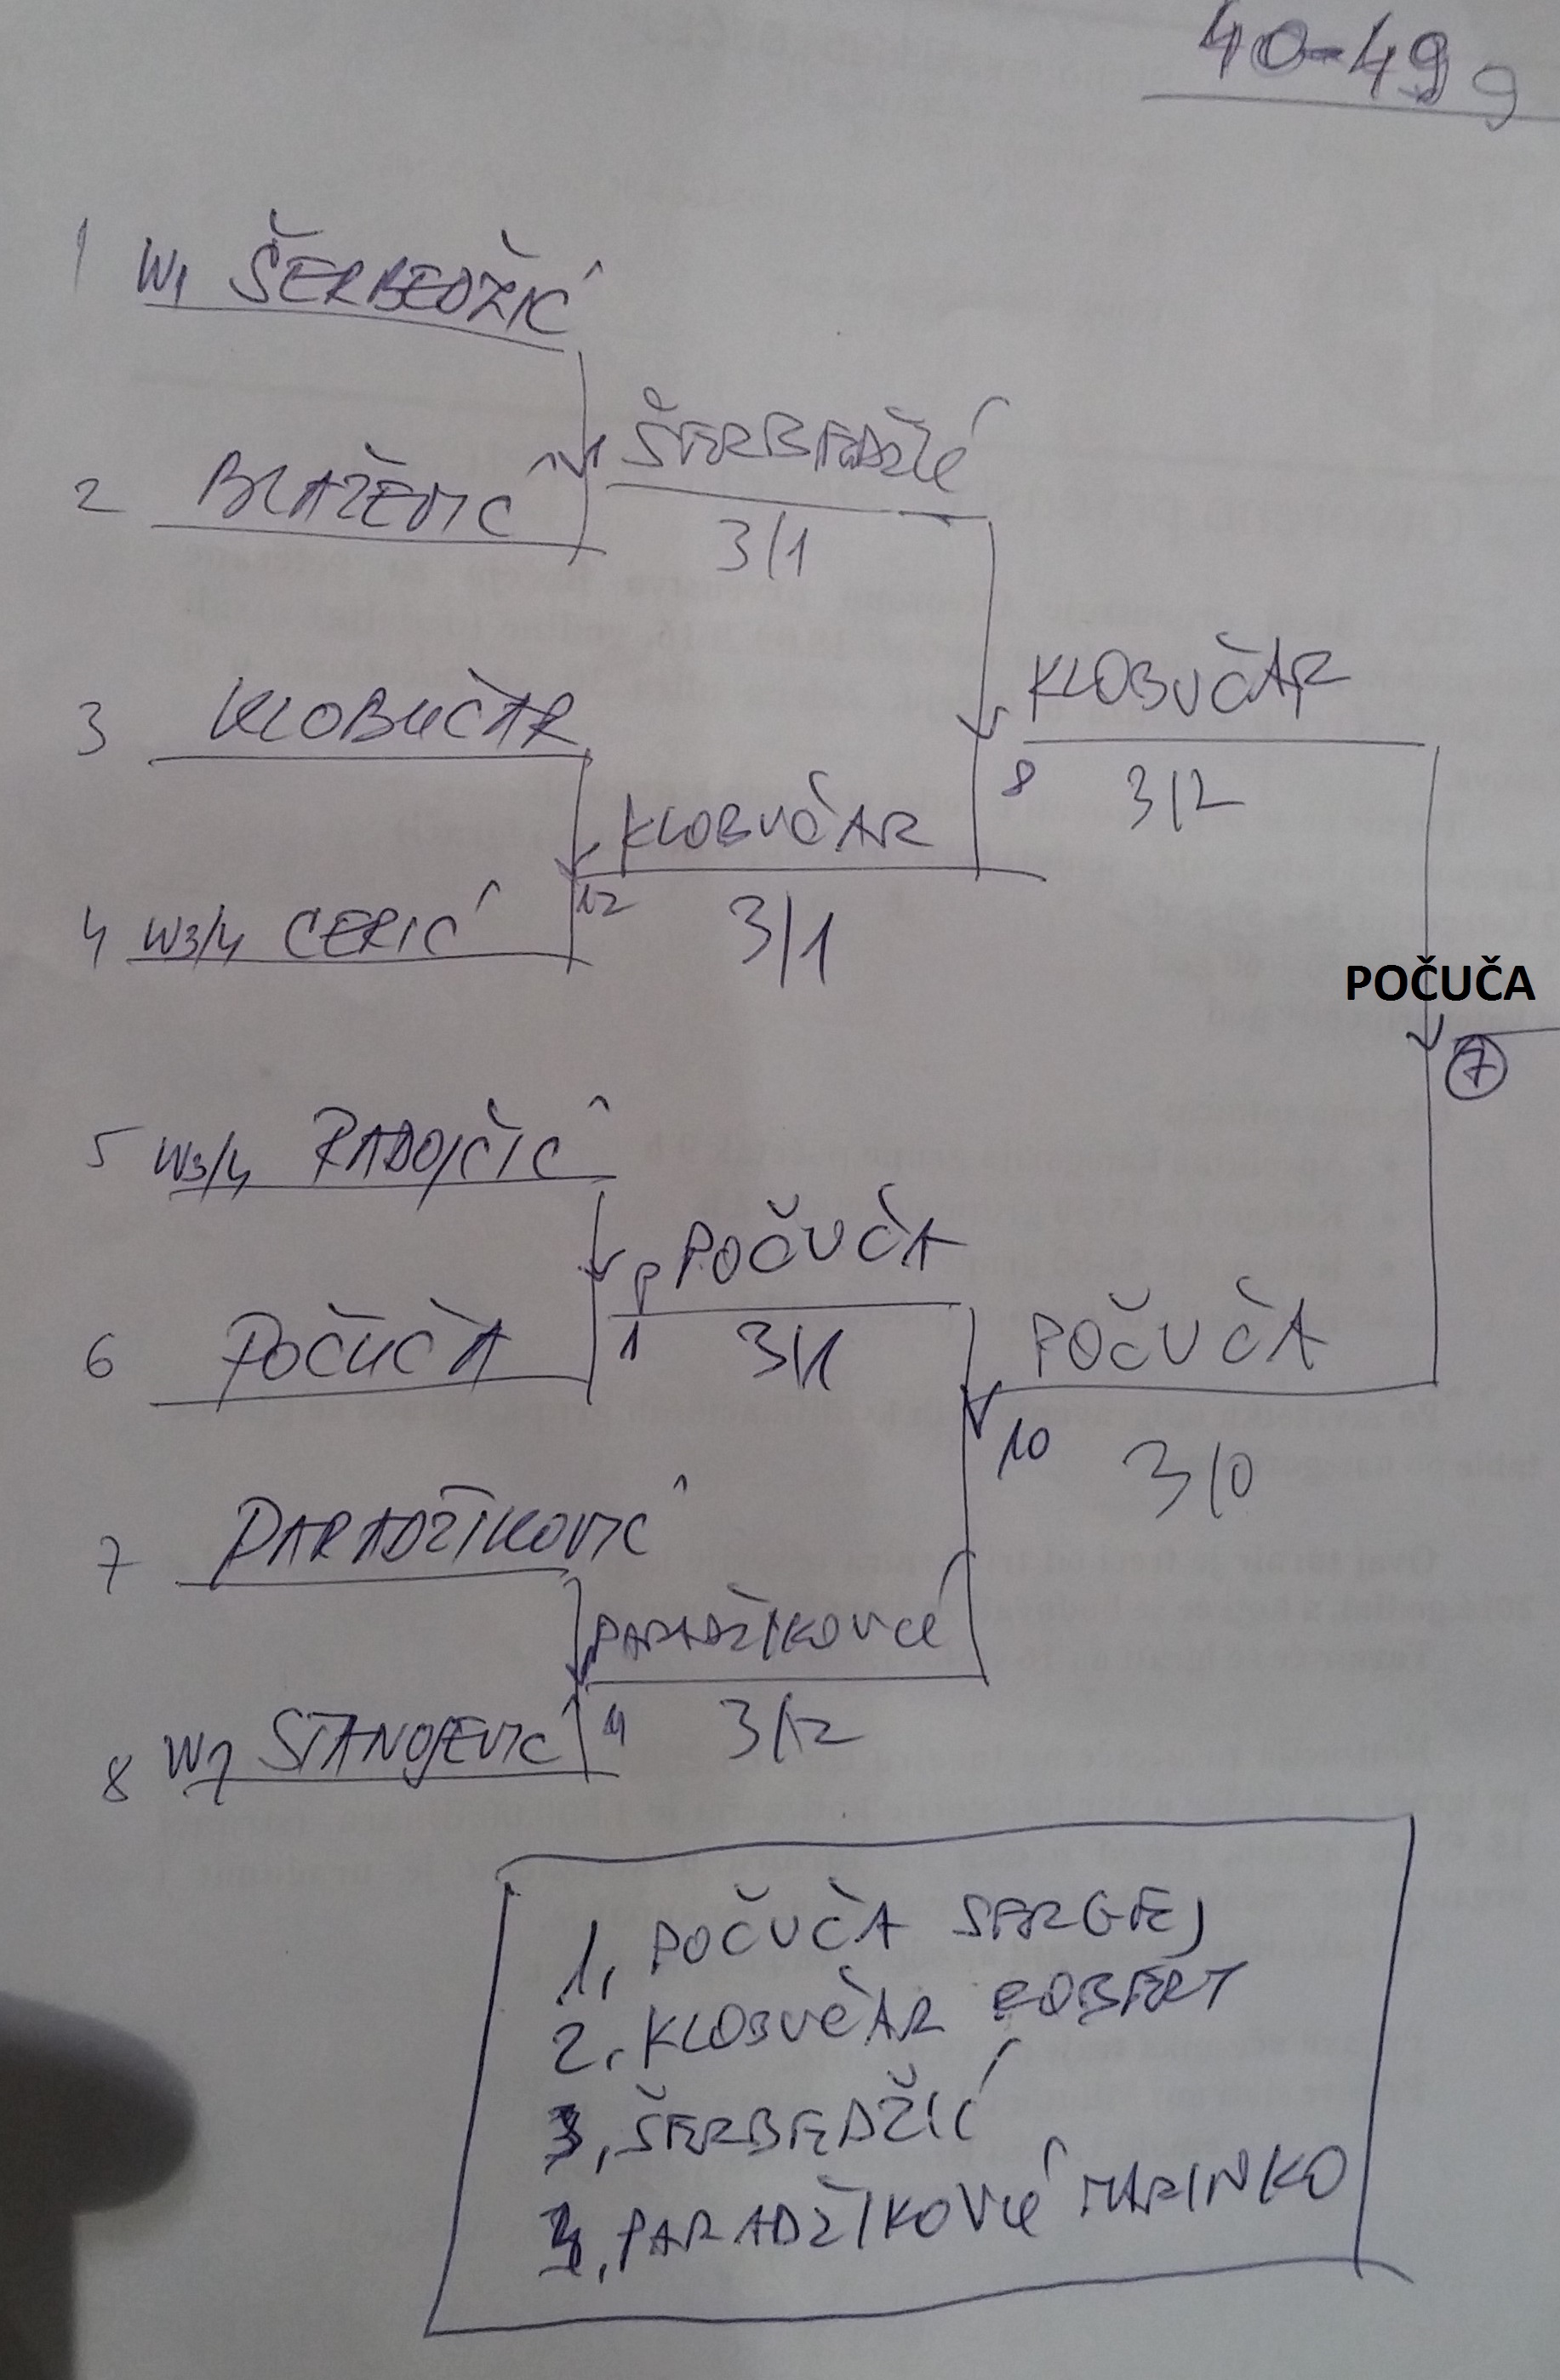 40-49g
1 W1 ŠERBEDŽIĆ
ŠERBEDŽIĆ
2 BLAŽEVIĆ
3/1
KLOBUČAR
3 KLOBUČAR
8 3/2
KLOBUČAR
12
4 W3/4 CERIĆ
3/1
POČUČA
7
5 W3/4 RADOJČIĆ
POČUČA
1 3/1
6 POČUČA
POČUČA
10 3/0
7 PARADŽIKOVIĆ
PARADŽIKOVIĆ
8 W2 STANOJEVIĆ
11 3/2
1. POČUČA SERGEJ
2. KLOBUČAR ROBERT
3. ŠERBEDŽIĆ
3. PARADŽIKOVIĆ MARINKO